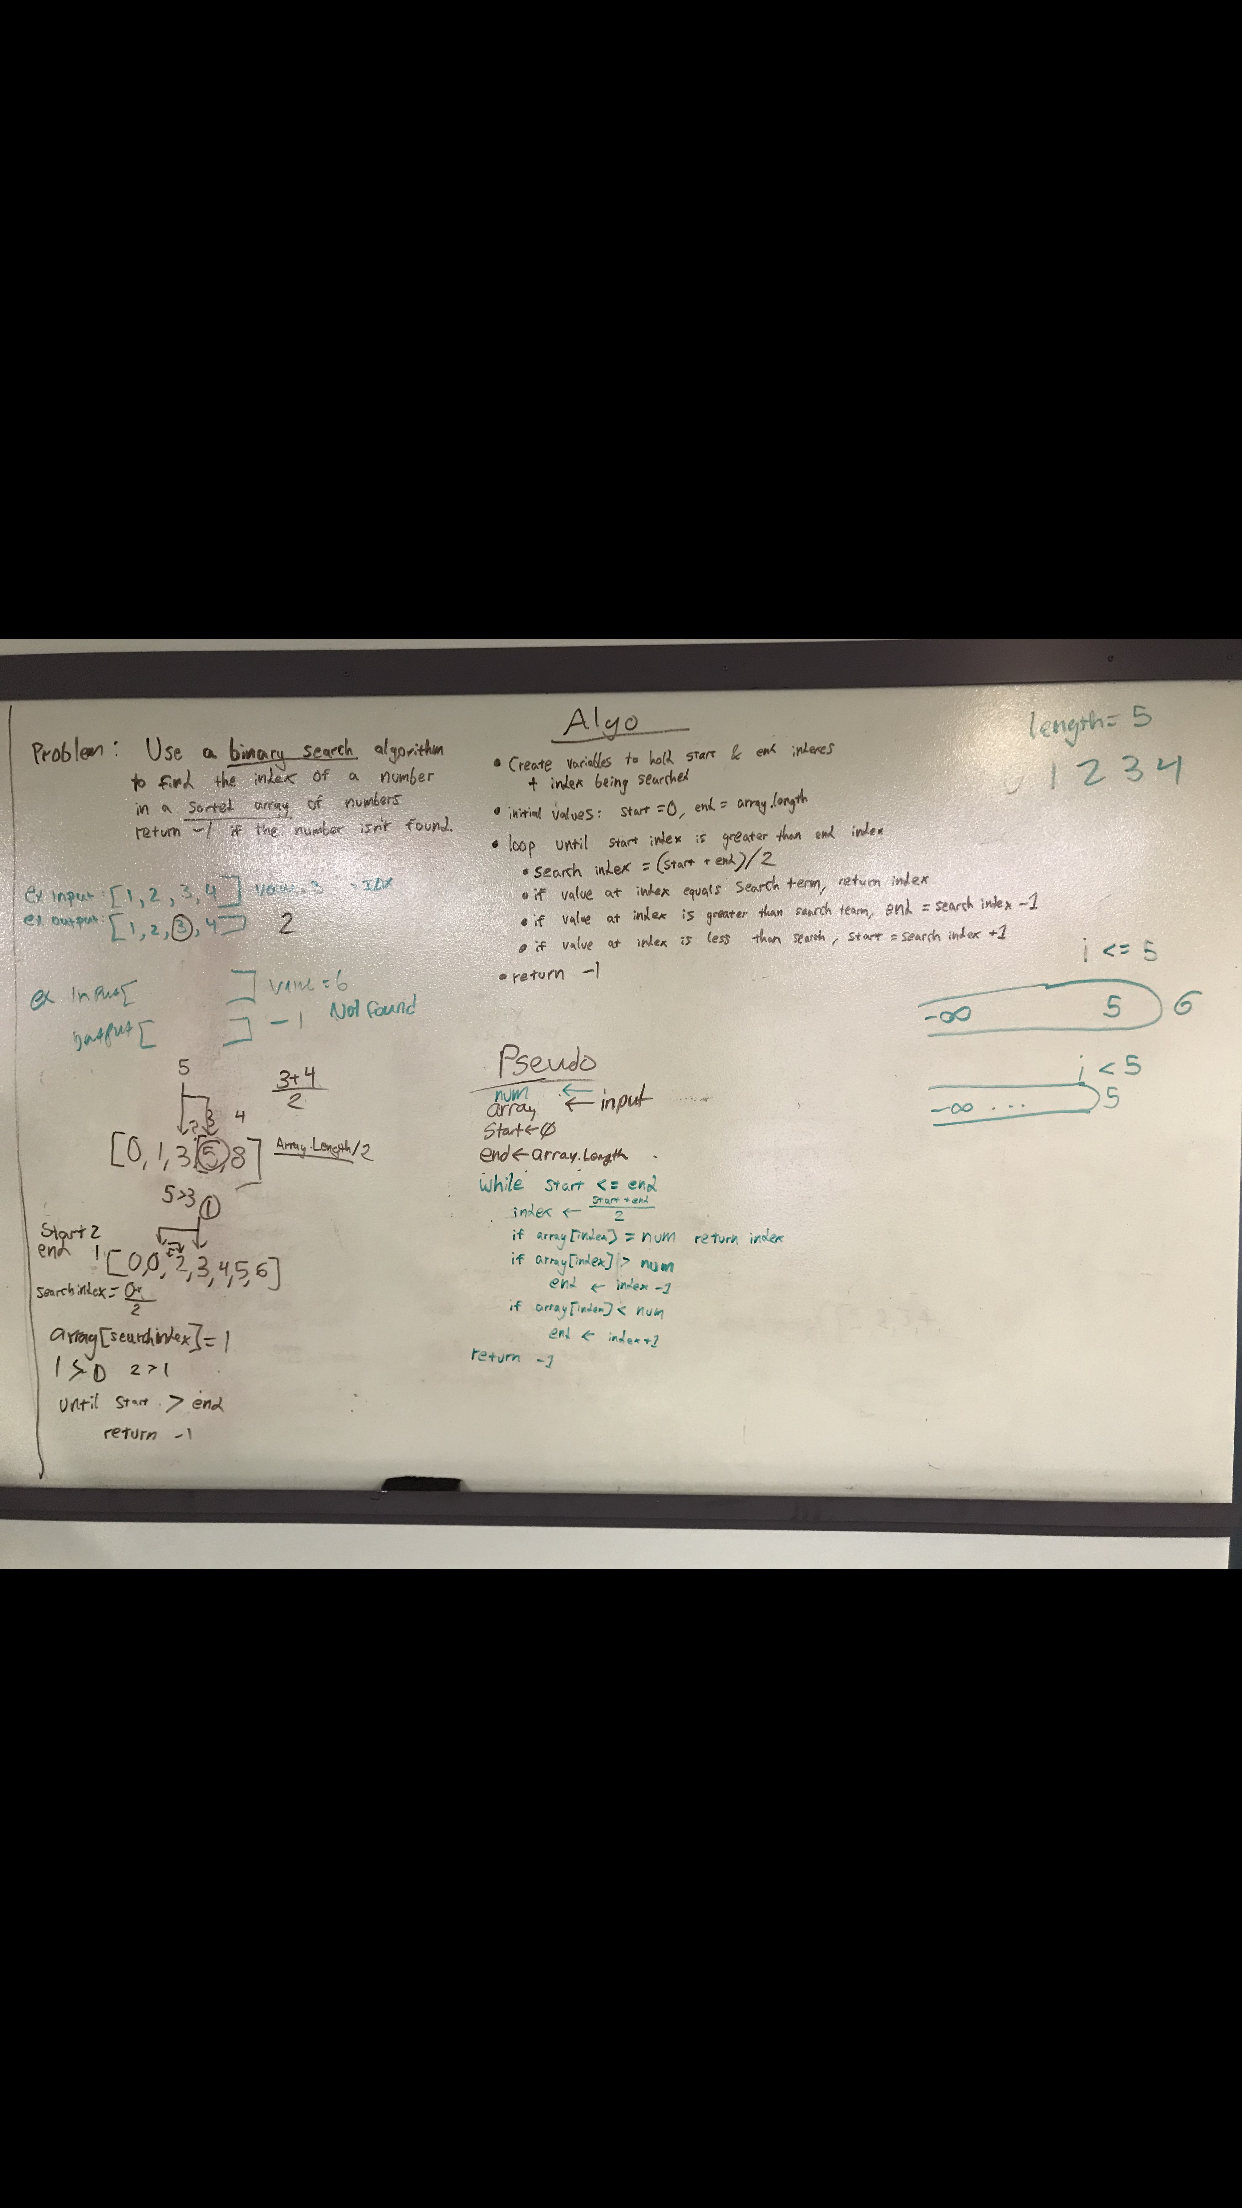 Problem: Use a binary search algorithm
to find the index of a number
in a sorted array of numbers
return -1 if the number isn't found.
ex input: [1, 2, 3, 4] 3 IDX
ex output: [1, 2, 3, 4] 2
ex input[ ] value = 6
output[ ] -1 Not found
5
3+4
2
2 3 4
[0, 1, 3, 5, 8] Array.Length/2
5>3
1
Start 2
end 1
[0,0, 2, 3, 4, 5, 6]
search index =
2
array[searchindex] = 1
1 > 0 2 > 1
until start > end
return -1
Algo
• Create variables to hold start & end indexes
+ index being searched
• initial values: start = 0, end = array.length
• loop until start index is greater than end index
• search index = (start + end)/2
• if value at index equals search term, return index
• if value at index is greater than search team, end = search index -1
• if value at index is less than search, start = search index +1
• return -1
Pseudo
num ←
array ← input
Start ← 0
end ← array.Length
while start <= end
index ← start + end
2
if array[index] = num return index
if array[index] > num
end ← index -1
if array[index] < num
end ← index+1
return -1
length = 5
0 1 2 3 4
i <= 5
-∞ 5 6
i < 5
-∞ ... 5